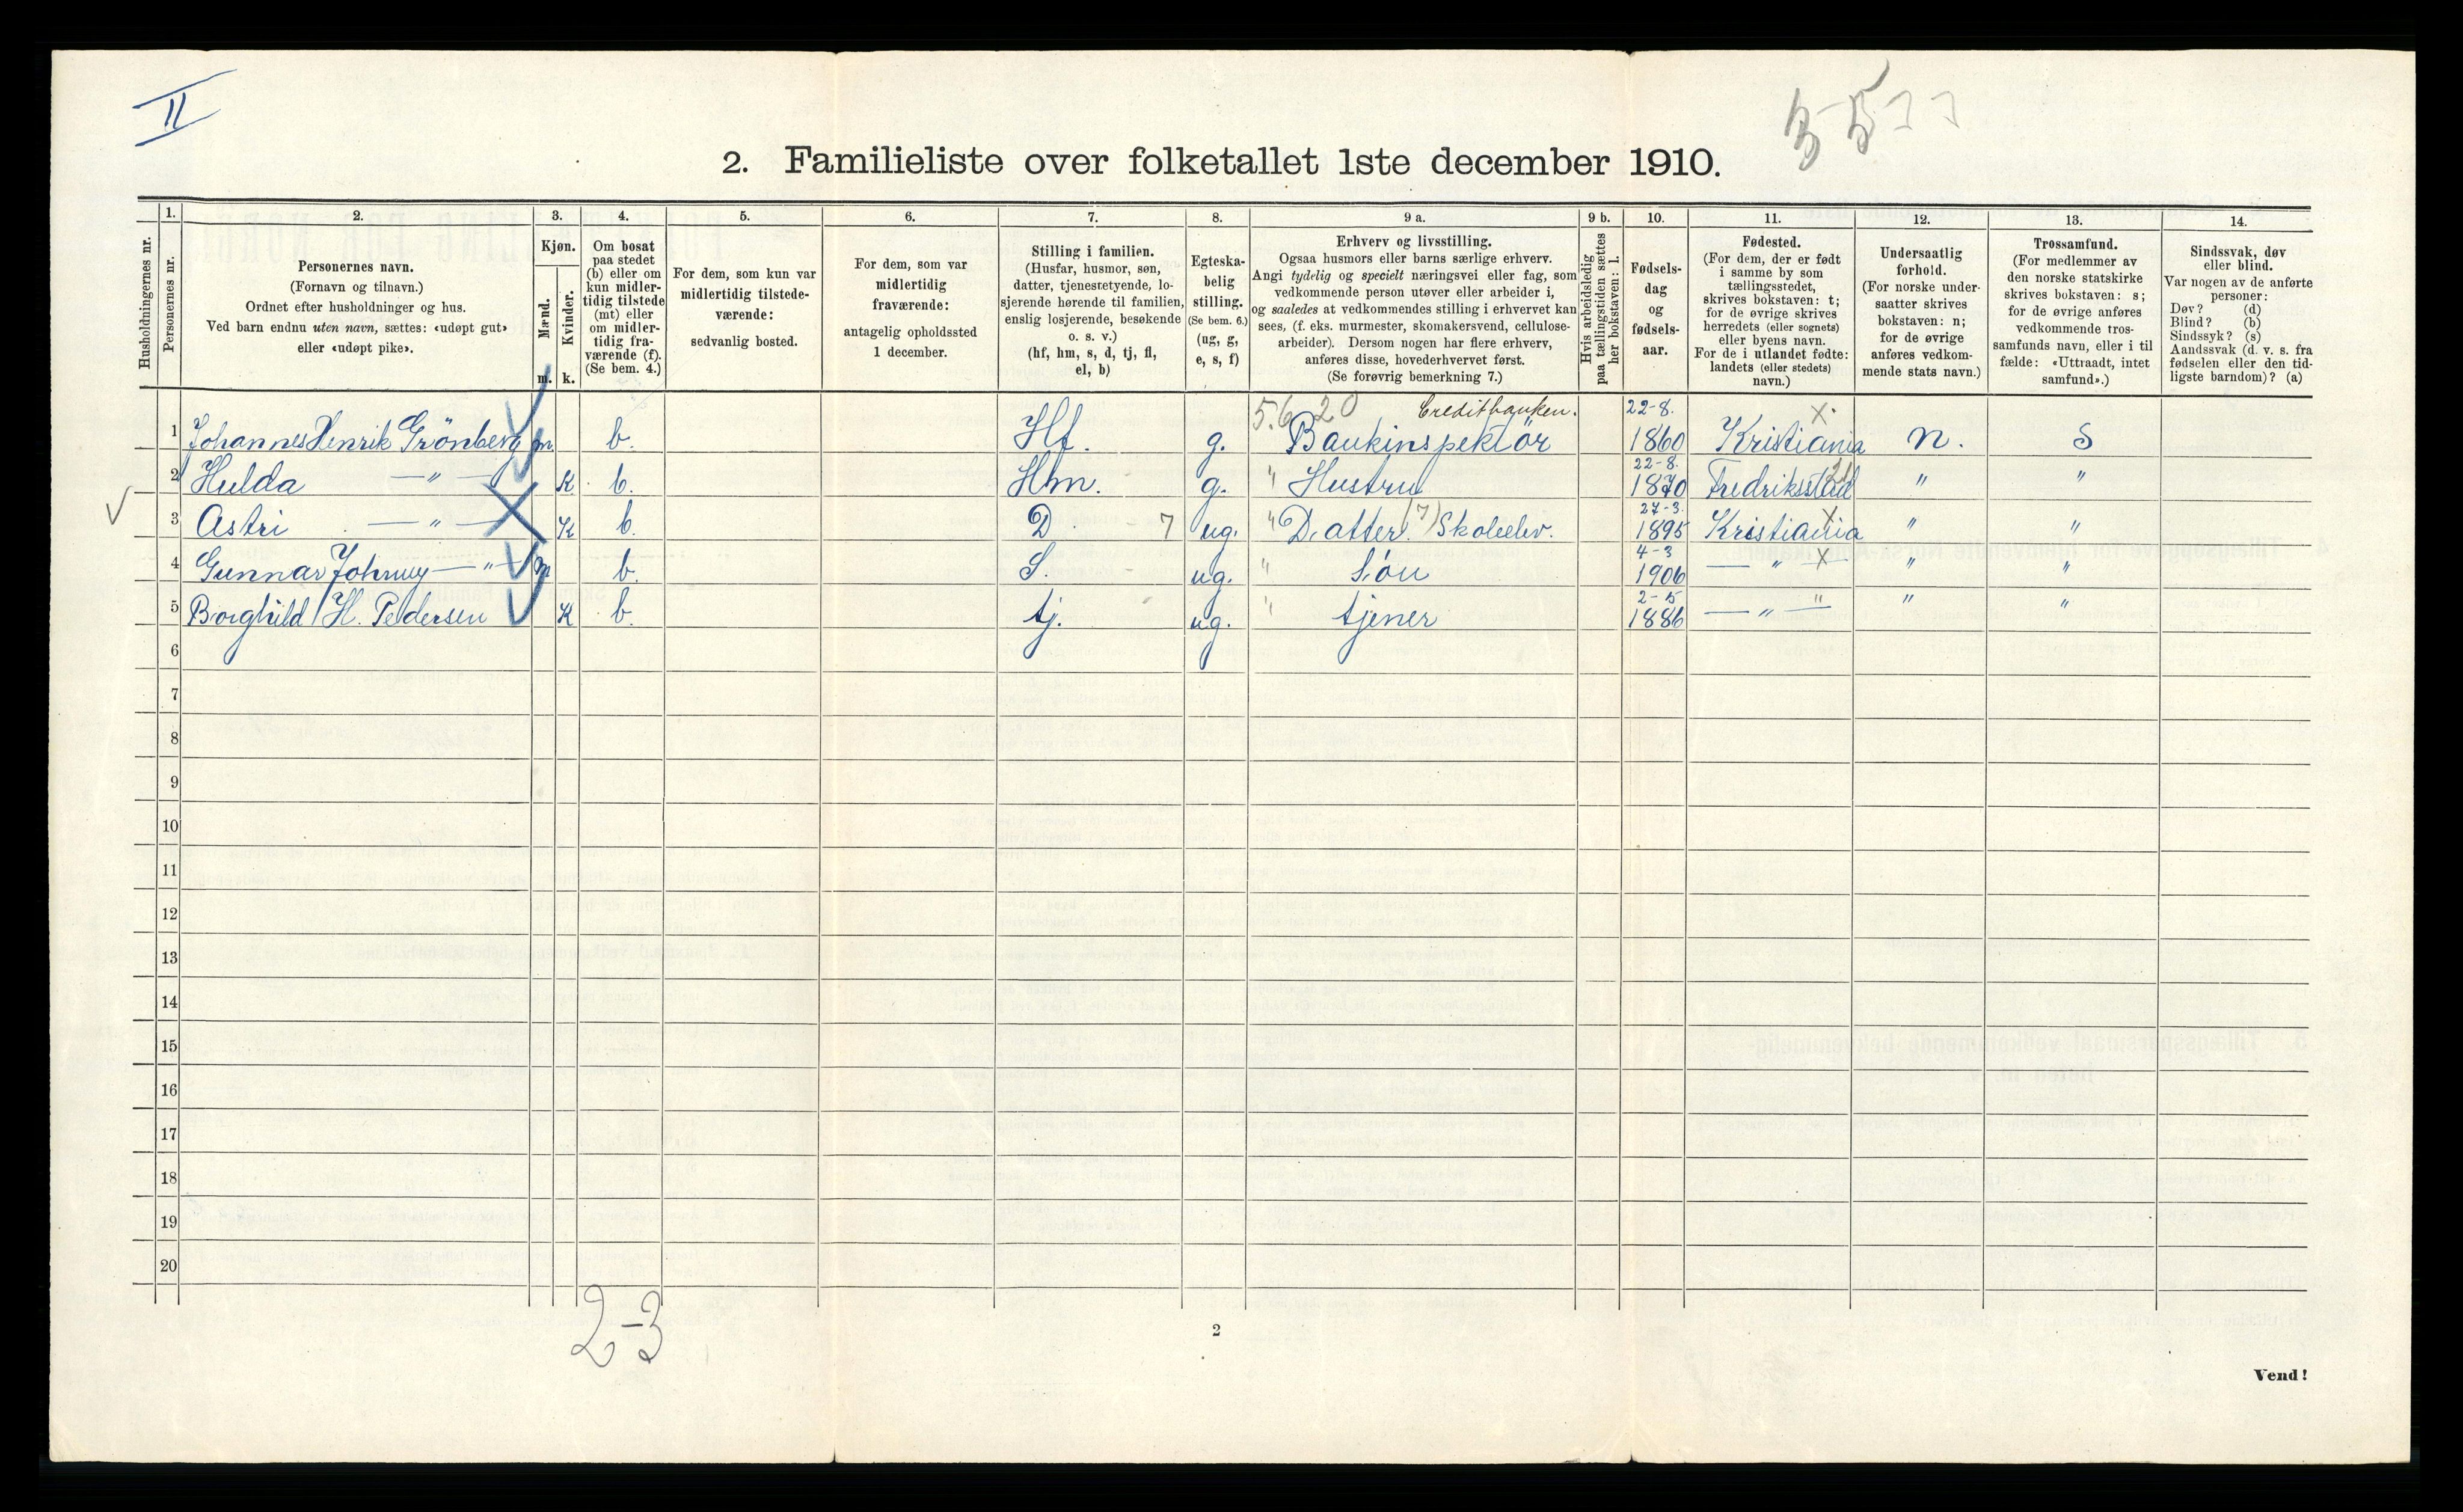 II
3-5
2. Familieliste over folketallet 1ste december 1910.
Husholdningernes nr.
1.
Personernes nr.
2.
Personernes navn.
(Fornavn og tilnavn.)
Ordnet efter husholdninger og hus.
Ved barn endnu uten navn, sættes: «udøpt gut»
eller «udøpt pike».
3.
Kjøn.
Mænd.
Kvinder.
m. k.
4.
Om bosat
paa stedet
(b) eller om
kun midler-
tidig tilstede
(mt) eller
om midler-
tidig fra-
værende (f).
(Se bem. 4.)
5.
For dem, som kun var
midlertidig tilstede-
værende:
sedvanlig bosted.
6.
For dem, som var
midlertidig
fraværende:
antagelig opholdssted
1 december.
7.
Stilling i familien.
(Husfar, husmor, søn,
datter, tjenestetyende, lo-
sjerende hørende til familien,
enslig losjerende, besøkende
o. s. v.)
(hf, hm, s, d, tj, fl,
el, b)
8.
Egteska-
belig
stilling.
(Se bem. 6.)
(ug, g,
e, s, f)
9 a.
Erhverv og livsstilling.
Ogsaa husmors eller barns særlige erhverv.
Angi tydelig og specielt næringsvei eller fag, som
vedkommende person utøver eller arbeider i,
og saaledes at vedkommendes stilling i erhvervet kan
sees, (f. eks. murmester, skomakersvend, cellulose-
arbeider). Dersom nogen har flere erhverv,
anføres disse, hovederhvervet først.
(Se forøvrig bemerkning 7.)
9 b.
Hvis arbeidsledig
paa tællingstiden sættes
her bokstaven: l.
10.
Fødsels-
dag
og
fødsels-
aar.
11.
Fødested.
(For dem, der er født
i samme by som
tællingsstedet,
skrives bokstaven: t;
for de øvrige skrives
herredets (eller sognets)
eller byens navn.
For de i utlandet fødte:
landets (eller stedets)
navn.)
12.
Undersaatlig
forhold.
(For norske under-
saatter skrives
bokstaven: n;
for de øvrige
anføres vedkom-
mende stats navn.)
13.
Trossamfund.
(For medlemmer av
den norske statskirke
skrives bokstaven: s;
for de øvrige anføres
vedkommende tros-
samfunds navn, eller i til
fælde: «Uttraadt, intet
samfund».)
14.
Sindssvak, døv
eller blind.
Var nogen av de anførte
personer:
Døv? (d)
Blind? (b)
Sindssyk? (s)
Aandssvak (d. v. s. fra
fødselen eller den tid-
ligste barndom)? (a)
5.6 20 Creditbanken. 22-8. X
1 Johannes Henrik Grönberg m. b. Hf. g. Bankinspektör 1860 Kristiania n. S
22-8. 21
2 Hulda —"— K b. Hm. g. " Hustru 1870 Fredriksstad " "
27-3.
3 Astri —"— K b. D 7 ug. " Datter. (7) Skoleelev. 1895 Kristiania " "
4-3
4 Gunnar Johnny —"— m b. S. ug. " Sön 1906 —"— X " "
2-5
5 Borghild H. Pedersen K b. tj. ug. " tjener 1886 —"— " " "
6
7
8
9
10
11
12
13
14
15
16
17
18
19
20
2-3
2
Vend!